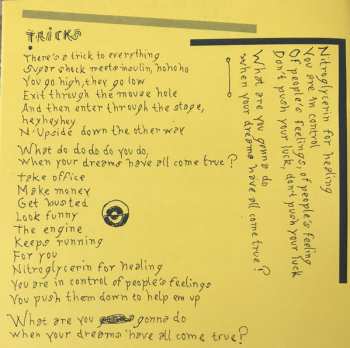 Tricks
There's a trick to everything
Sugar shock meets insulin, hohoho
You go high, they go low
Exit through the mouse hole
And then enter through the stage,
heyheyhey
N'Upside down the other way
What do do do do you do,
when your dreams have all come true?
Take office
Make money
Get busted
Look funny
The engine
Keeps running
For you
Nitroglycerin for healing
You are in control of people's feelings
You push them down to help em up
What are you gonna do
when your dreams have all come true?
Nitroglycerin for healing
You are in control
Of people's feelings, of people's feeling
Don't push your luck, don't push your luck
What are you gonna do
when your dreams have all come true?